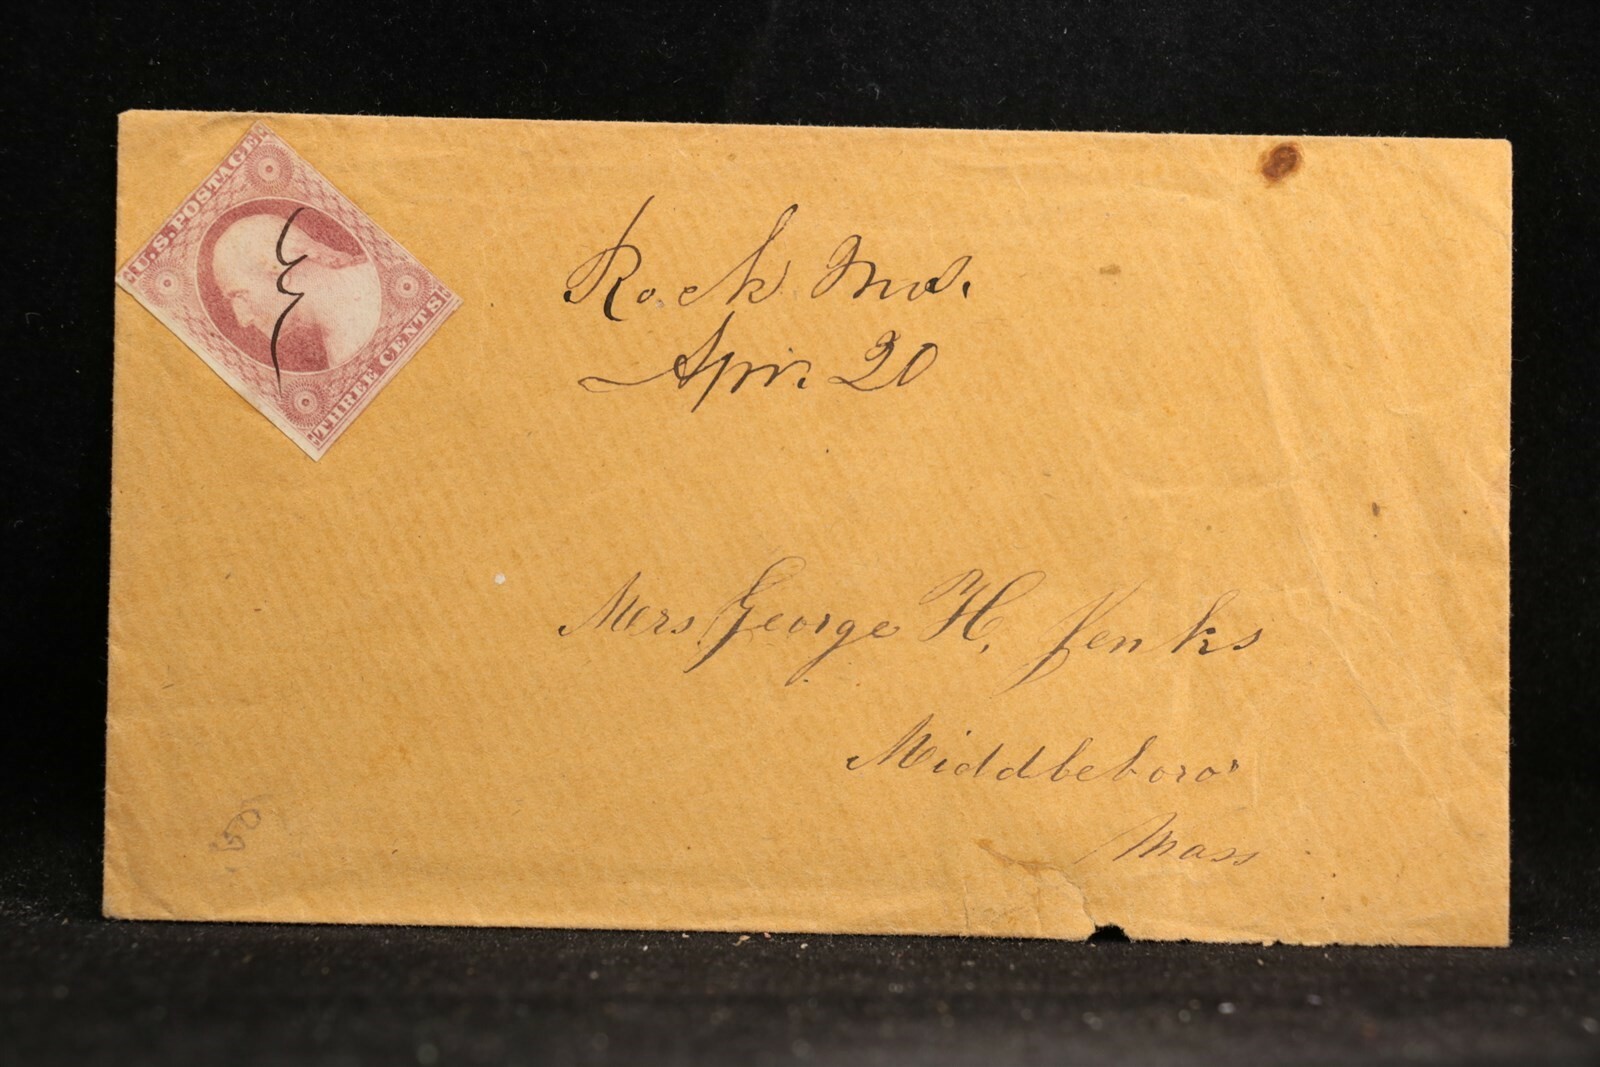 U.S. POSTAGE
THREE CENTS
Rock
20
Mrs George H. Jenks
Middleboro'
Mass